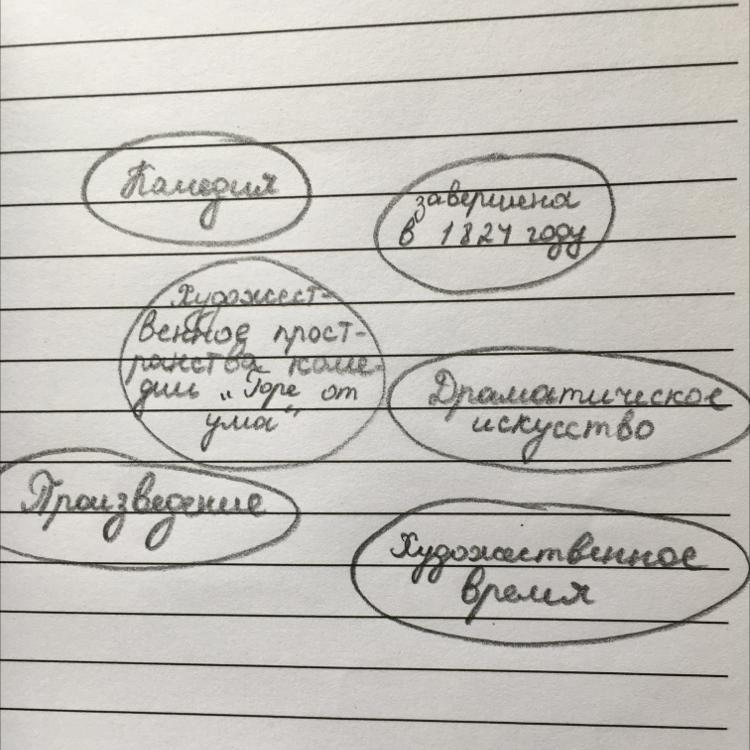 Комедия
завершена
в 1824 году
Художест-
венное прост-
ранства коме-
дии „Горе от
ума"
Драматическое
искусство
Произведение
Художественное
время